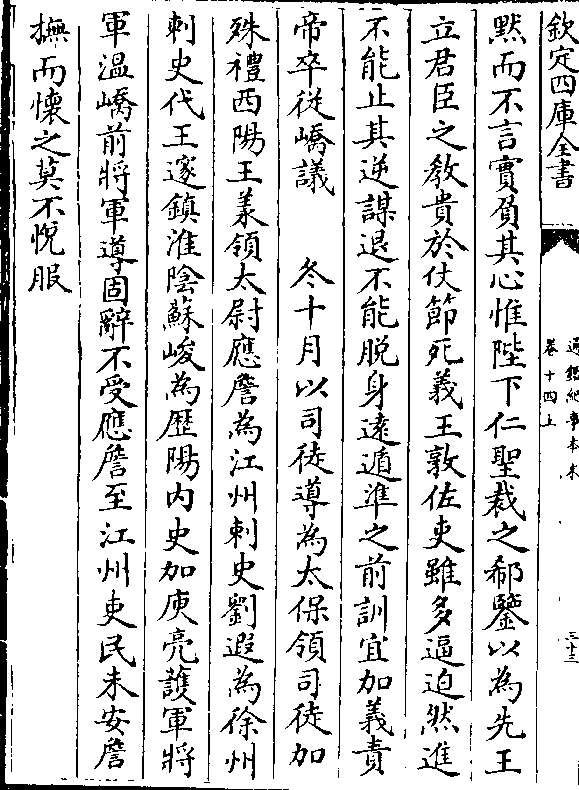 欽定四庫全書
通鑑紀事本末
卷十四上
三十三
黙而不言實負其心惟陛下仁聖裁之郗鑒以為先王
立君臣之教貴於伏節死義王敦佐吏雖多逼迫然進
不能止其逆謀退不能脱身遠遁準之前訓宜加義責
帝卒從嶠議　　冬十月以司徒導為太保領司徒加
殊禮西陽王羕領太尉應詹為江州刺史劉遐為徐州
刺史代王邃鎮淮陰蘇峻為歴陽内史加庾亮護軍將
軍温嶠前將軍導固辭不受應詹至江州吏民未安詹
撫而懷之莫不悦服